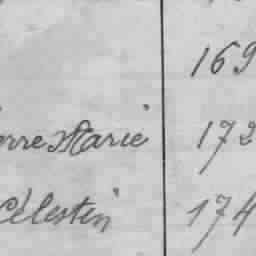 169
erre Marie 172
Célestin 174